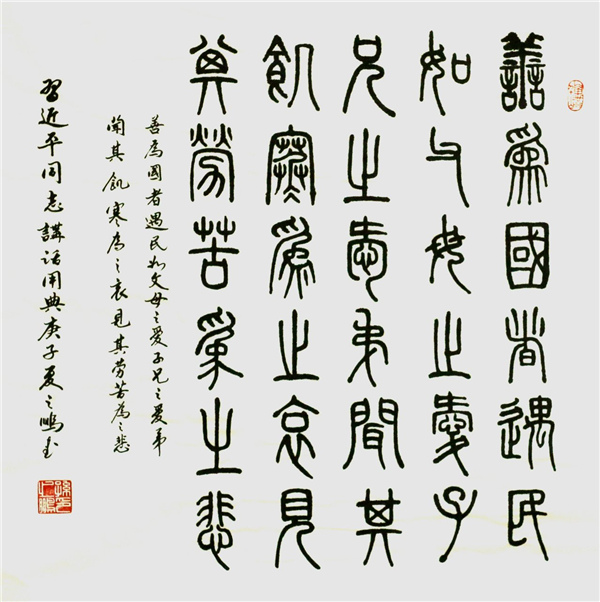 善為國者遇民
如父母之愛子
兄之愛弟聞其
飢寒為之哀見
其勞苦為之悲
善為國者遇民如父母之愛子兄之愛弟
聞其飢寒為之哀見其勞苦為之悲
習近平同志講話用典庚子夏之鵬書